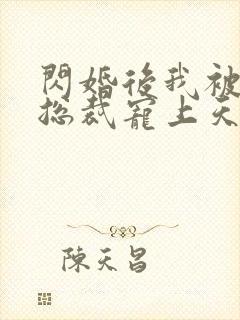 閃婚後我被
總裁寵上天
陳天昌